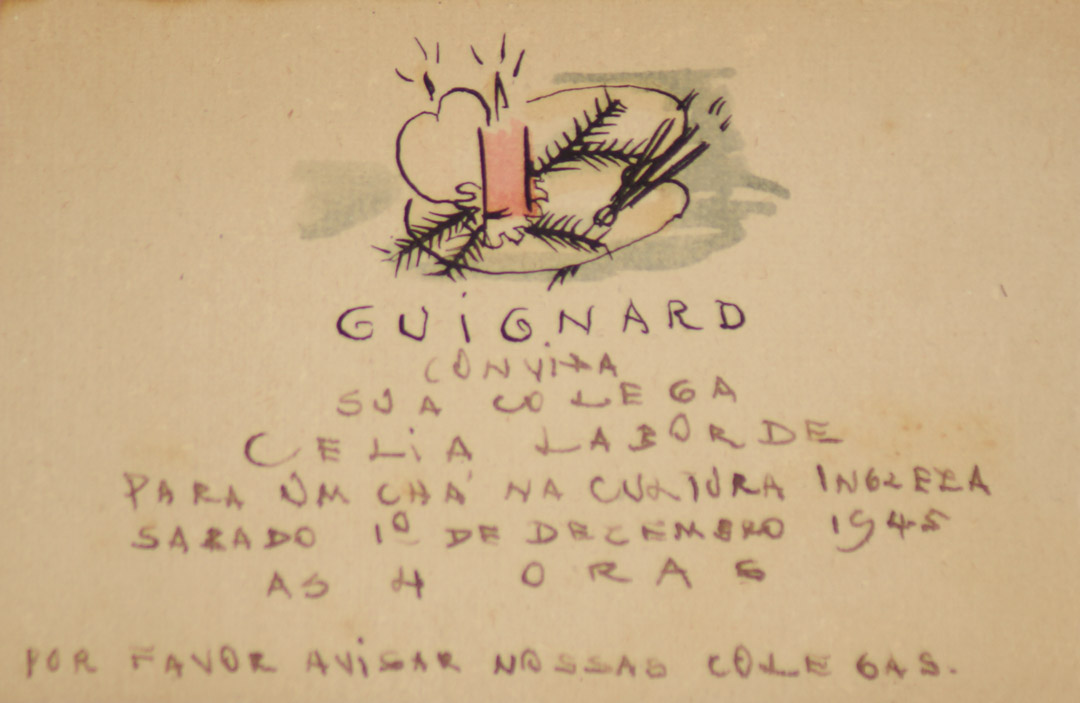 GUiGNARD
CONViTA
SUA COLEGA
CELiA LABORDE
PARA UM CHÁ NA CULTURA INGLEZA
SABADO 1º DE DEZEMBRO 1945
AS 4 ORAS
POR FAVOR AViSAR NOSSAS COLEGAS.